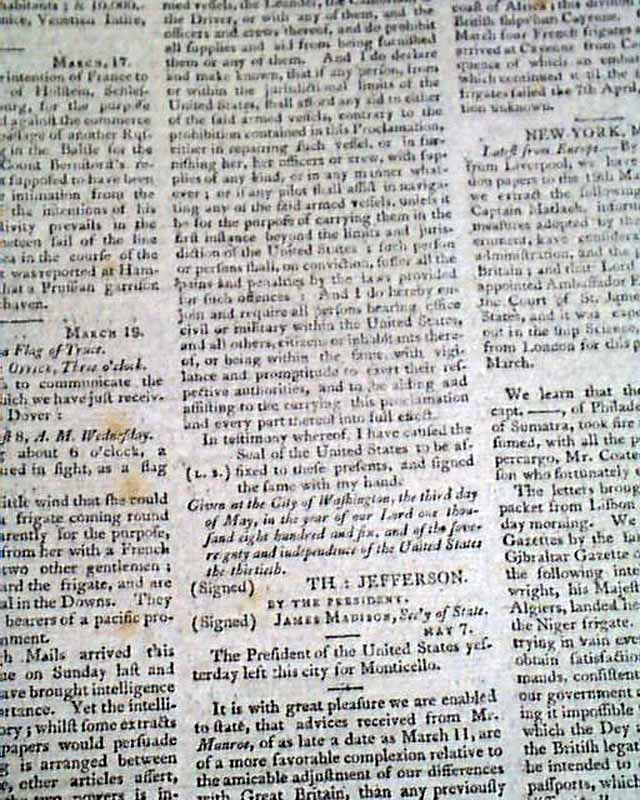 abitants ; & 10,000,
MARCH, 17.
intention of France to
of Holstein, Schles-
for the purpose
against the commerce
of another Ruf-
in the Baltic for the
Count Bernstorf's re-
supposed to have been
intimation from the
the intentions of his
tivity prevails in the
fail of the line
in the course of the
was reported at Ham-
that a Prussian garrison
haven.
MARCH 19.
a Flag of Truce.
OFFICE, Three o'clock.
to communicate the
which we have just receiv-
Dover :
8, A. M. Wednesday.
about 6 o'clock, a
in sight, as a flag
little wind that she could
a frigate coming round
for the purpose,
from her with a French
two other gentlemen ;
the frigate, and are
in the Downs. They
bearers of a pacific pro-
Mails arrived this
on Sunday last and
have brought intelligence
Yet the intelli-
; whilst some extracts
papers would persuade
is arranged between
other articles assert,
two powers is in-
the Driver, or with any of them, and the
officers and crew, thereof, and do prohibit
all supplies and aid from being furnished
them or any of them. And I do declare
and make known, that if any person, from
or within the jurisdictional limits of the
United States, shall afford any aid to either
of the said armed vessels, contrary to the
prohibition contained in this Proclamation,
either in repairing such vessel, or in fur-
nishing her, her officers or crew, with sup-
plies of any kind, or in any manner what-
ever ; or if any pilot shall assist in naviga-
ting any of the said armed vessels, unless it
be for the purpose of carrying them in the
first instance beyond the limits and juris-
diction of the United States ; such person
or persons shall, on conviction, suffer all the
pains and penalties by the laws provided
for such offences : And I do hereby en-
join and require all persons bearing office
civil or military within the United States,
and all others, citizens or inhabitants there-
of, or being within the same, with vigi-
lance and promptitude to exert their res-
pective authorities, and to be aiding and
assisting to the carrying this proclamation
and every part thereof into full effect.
In testimony whereof, I have caused the
Seal of the United States to be af-
(L. S.) fixed to these presents, and signed
the same with my hand.
Given at the City of Washington, the third day
of May, in the year of our Lord one thou-
sand eight hundred and six, and of the sove-
reignty and independence of the United States
the thirtieth.
(Signed) TH : JEFFERSON.
BY THE PRESIDENT.
(Signed) JAMES MADISON, Sec'y of State.
MAY 7.
The President of the United States yes-
terday left this city for Monticello.
It is with great pleasure we are enabled
to state, that advices received from Mr.
Munroe, of as late a date as March 11, are
of a more favorable complexion relative to
the amicable adjustment of our differences
with Great Britain, than any previously
coast of Africa ;
British ship
March four French frigates
arrived at Cayenne from
quence of which an
which continued
frigates failed the 7th April,
tion unknown.
NEW-YORK,
Latest from Europe.—By
from Liverpool, we have
don papers to the
we extract the following
Captain Matlack,
measures adopted by the
ernment, have
administration, and the
Britain ; and that Lord
appointed Ambassador
the Court of St. James
States, and it was
out in the ship
from London for this
March.
We learn that the
capt. ——, of Philad
of Sumatra, took fire
sumed, with all the
percargo, Mr. Coate
son who fortunately
The letters brought
packet from Lisbon
day morning. We
Gazettes by the
Gibraltar Gazette
the following
wright, his Majesty
Algiers, landed
the Niger frigate.
trying in vain
obtain satisfaction
mands, consistent
our government
ing it impossible
which the Dey
the British
he intended to
passports, which